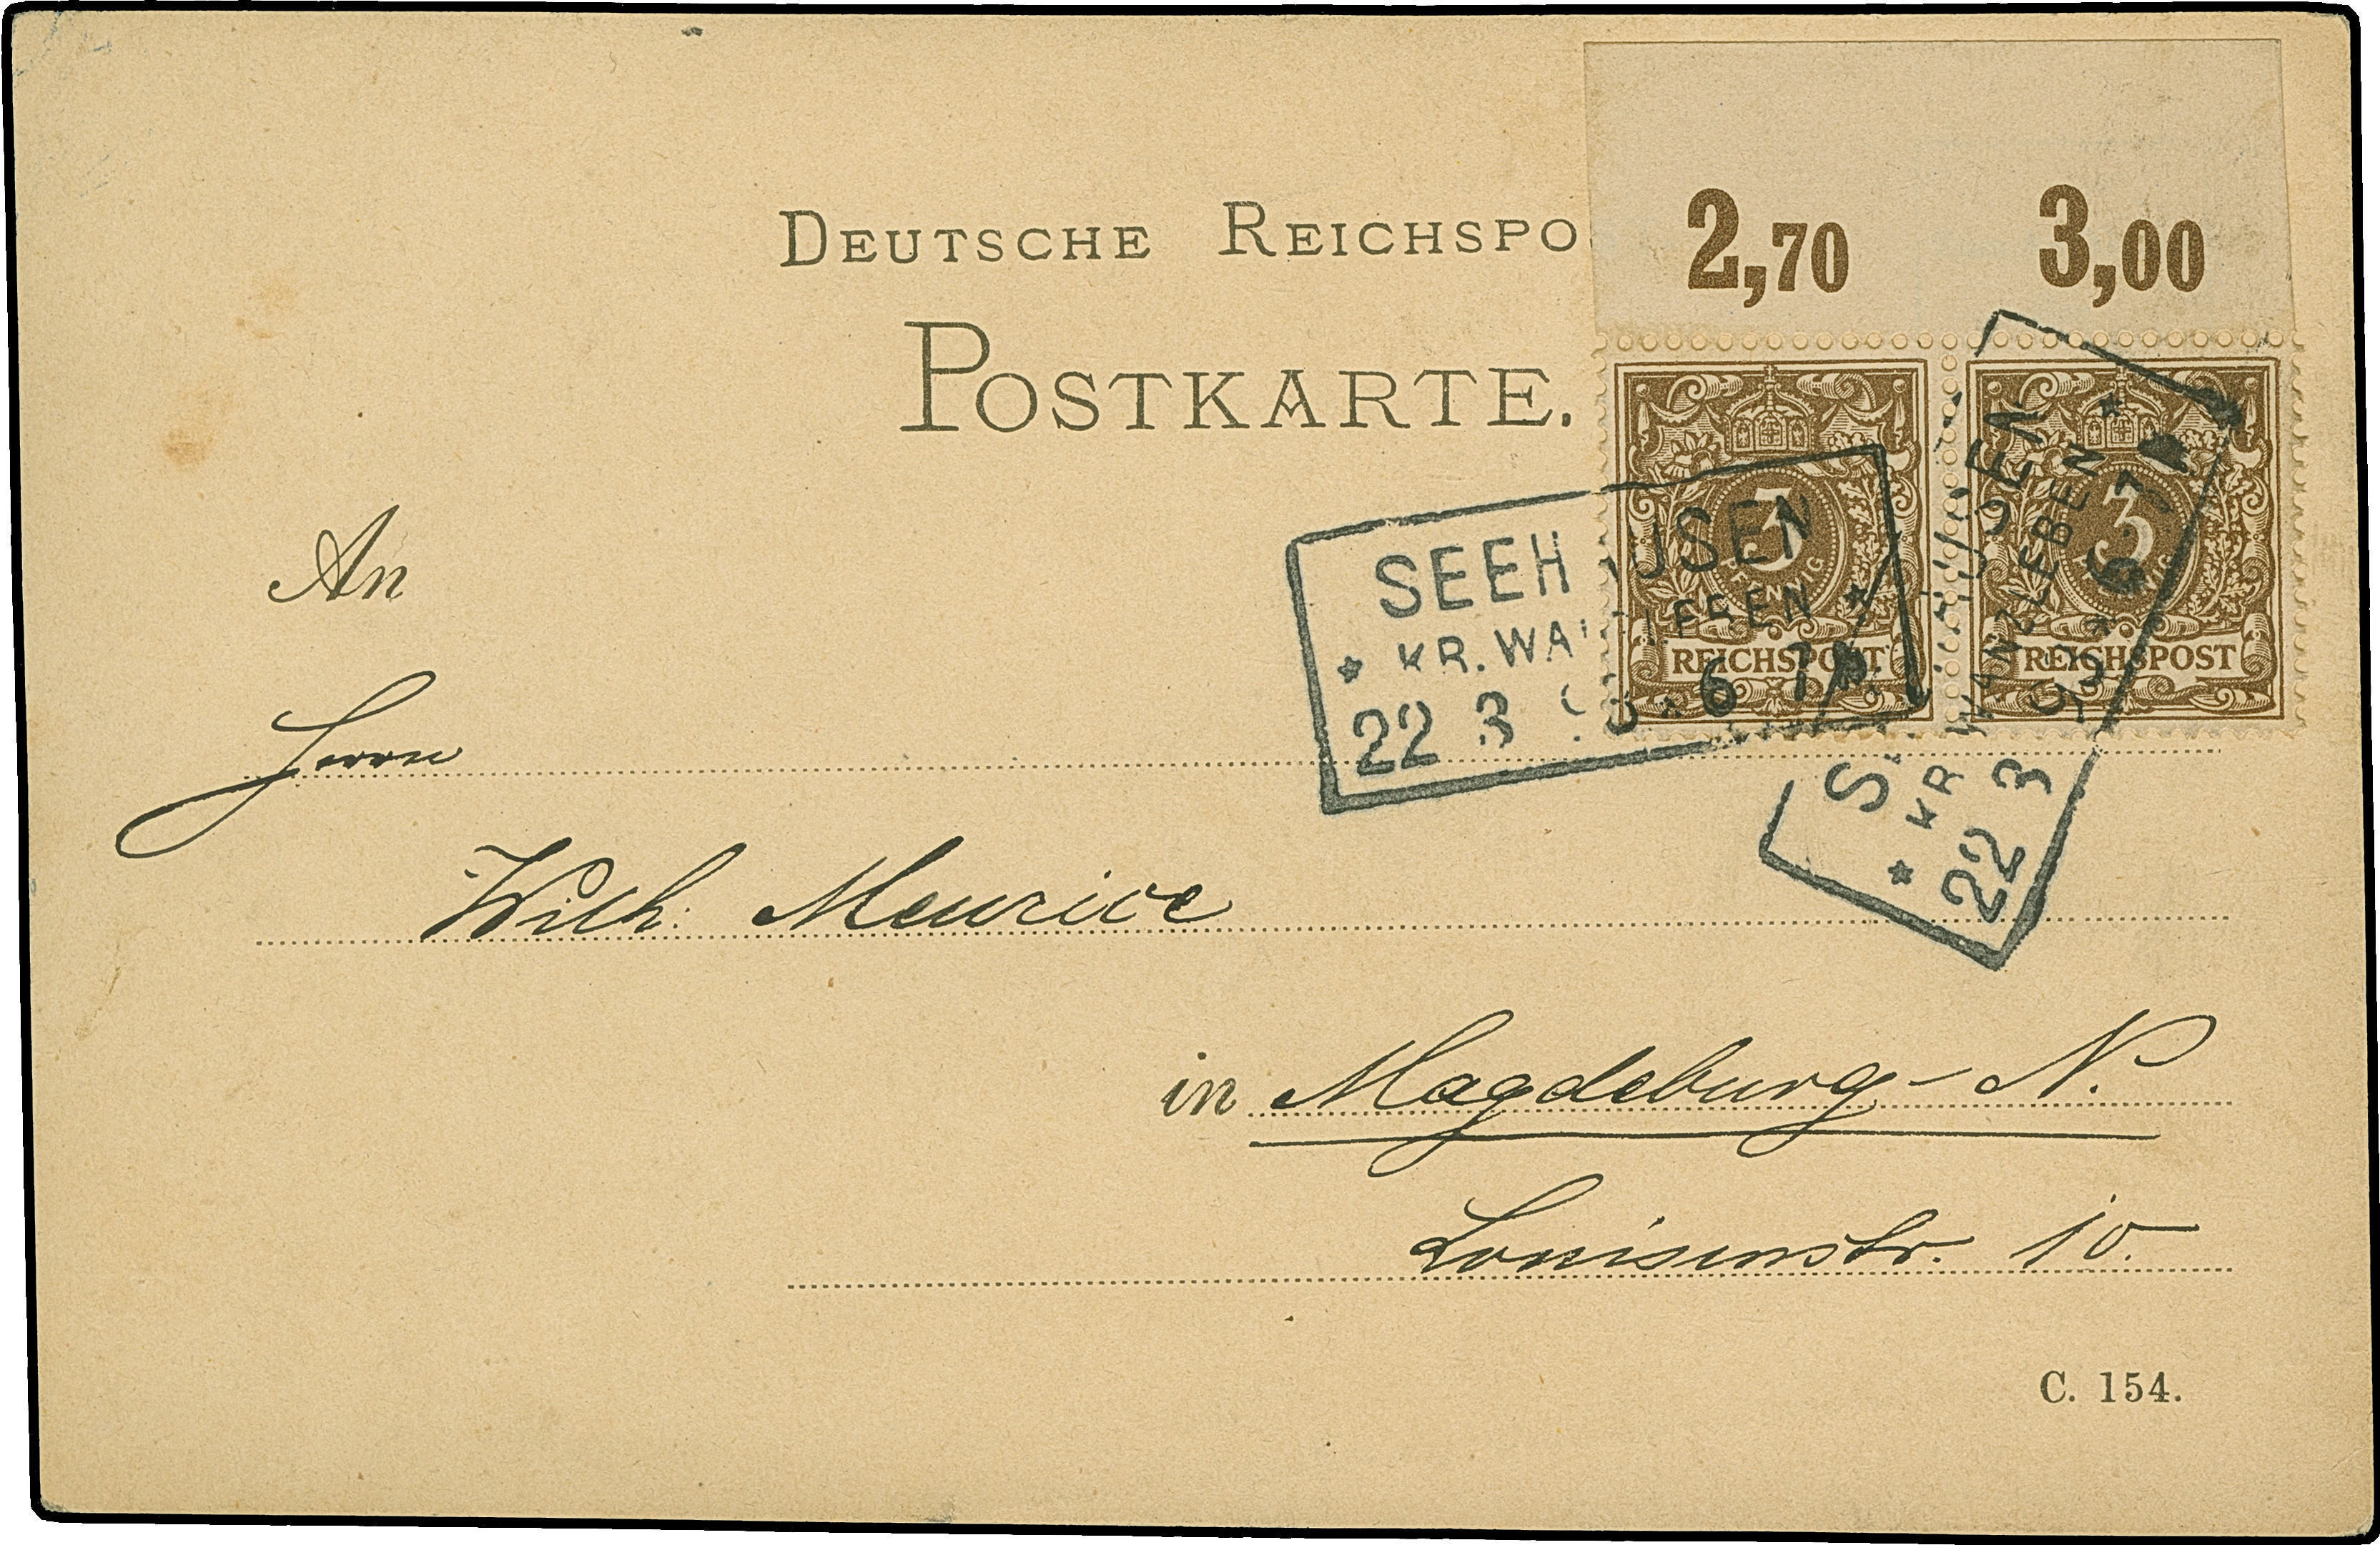 DEUTSCHE REICHSPO
2,70 3,00
POSTKARTE.
3 PFENNIG REICHSPOST
3 PFENNIG REICHSPOST
SEEHAUSEN
* KR. WANZLEBEN *
22 3 93 * 6-7 N
SEEHAUSEN
* KR. WANZLEBEN *
22 3 93 * 6-7 N
An
Herrn
Wilh. Meurice
in Magdeburg-N.
Louisenstr. 10.
C. 154.